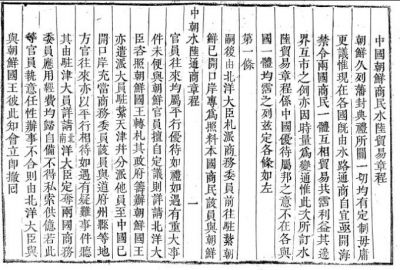 中國朝鮮商民水陸貿易章程
朝鮮久列藩封典禮所關一切均有定制毋庸
更議惟現在各國既由水路通商自宜亟開海
禁令兩國商民一體互相貿易共霑利益其邊
界互市之例亦因時量為變通惟此次所訂水
陸貿易章程係中國優待屬邦之意不在各與
國一體均霑之列茲定各條如左
第一條
嗣後由北洋大臣札派商務委員前往駐紮朝
鮮已開口岸專為照料本國商民該員與朝鮮
中朝水陸通商章程
一
官員往來均屬平行優待如禮如遇有重大事
件未便與朝鮮官員擅自定議則詳請北洋大
臣咨照朝鮮國王轉札其政府籌辦朝鮮國王
亦遣派大員駐紮天津並分派他員至中國已
開口岸充當商務委員該員與道府州縣等地
方官往來亦以平行相待如遇有疑難事件聽
其由駐津大員詳請北洋大臣定奪兩國商務
委員應用經費均歸自備不得私索供億若此
等官員執意任性辦事不合則由北洋大臣與
與朝鮮國王彼此知會立即撤回